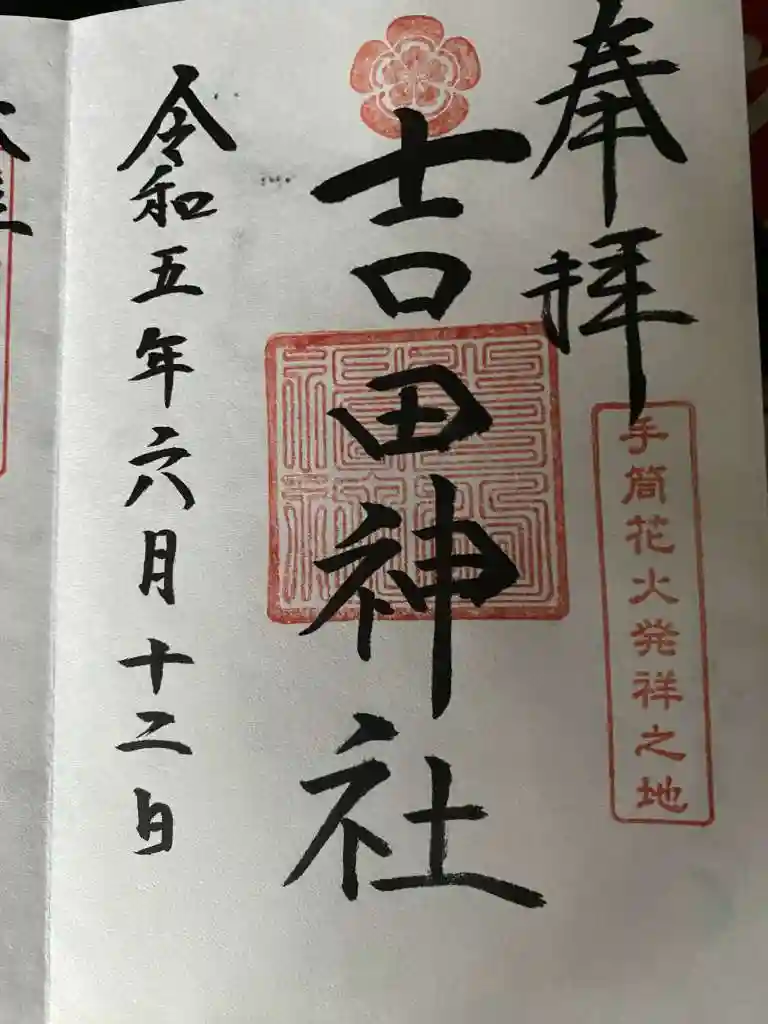 奉拝
手筒花火発祥之地
吉田神社
令和五年六月十二日